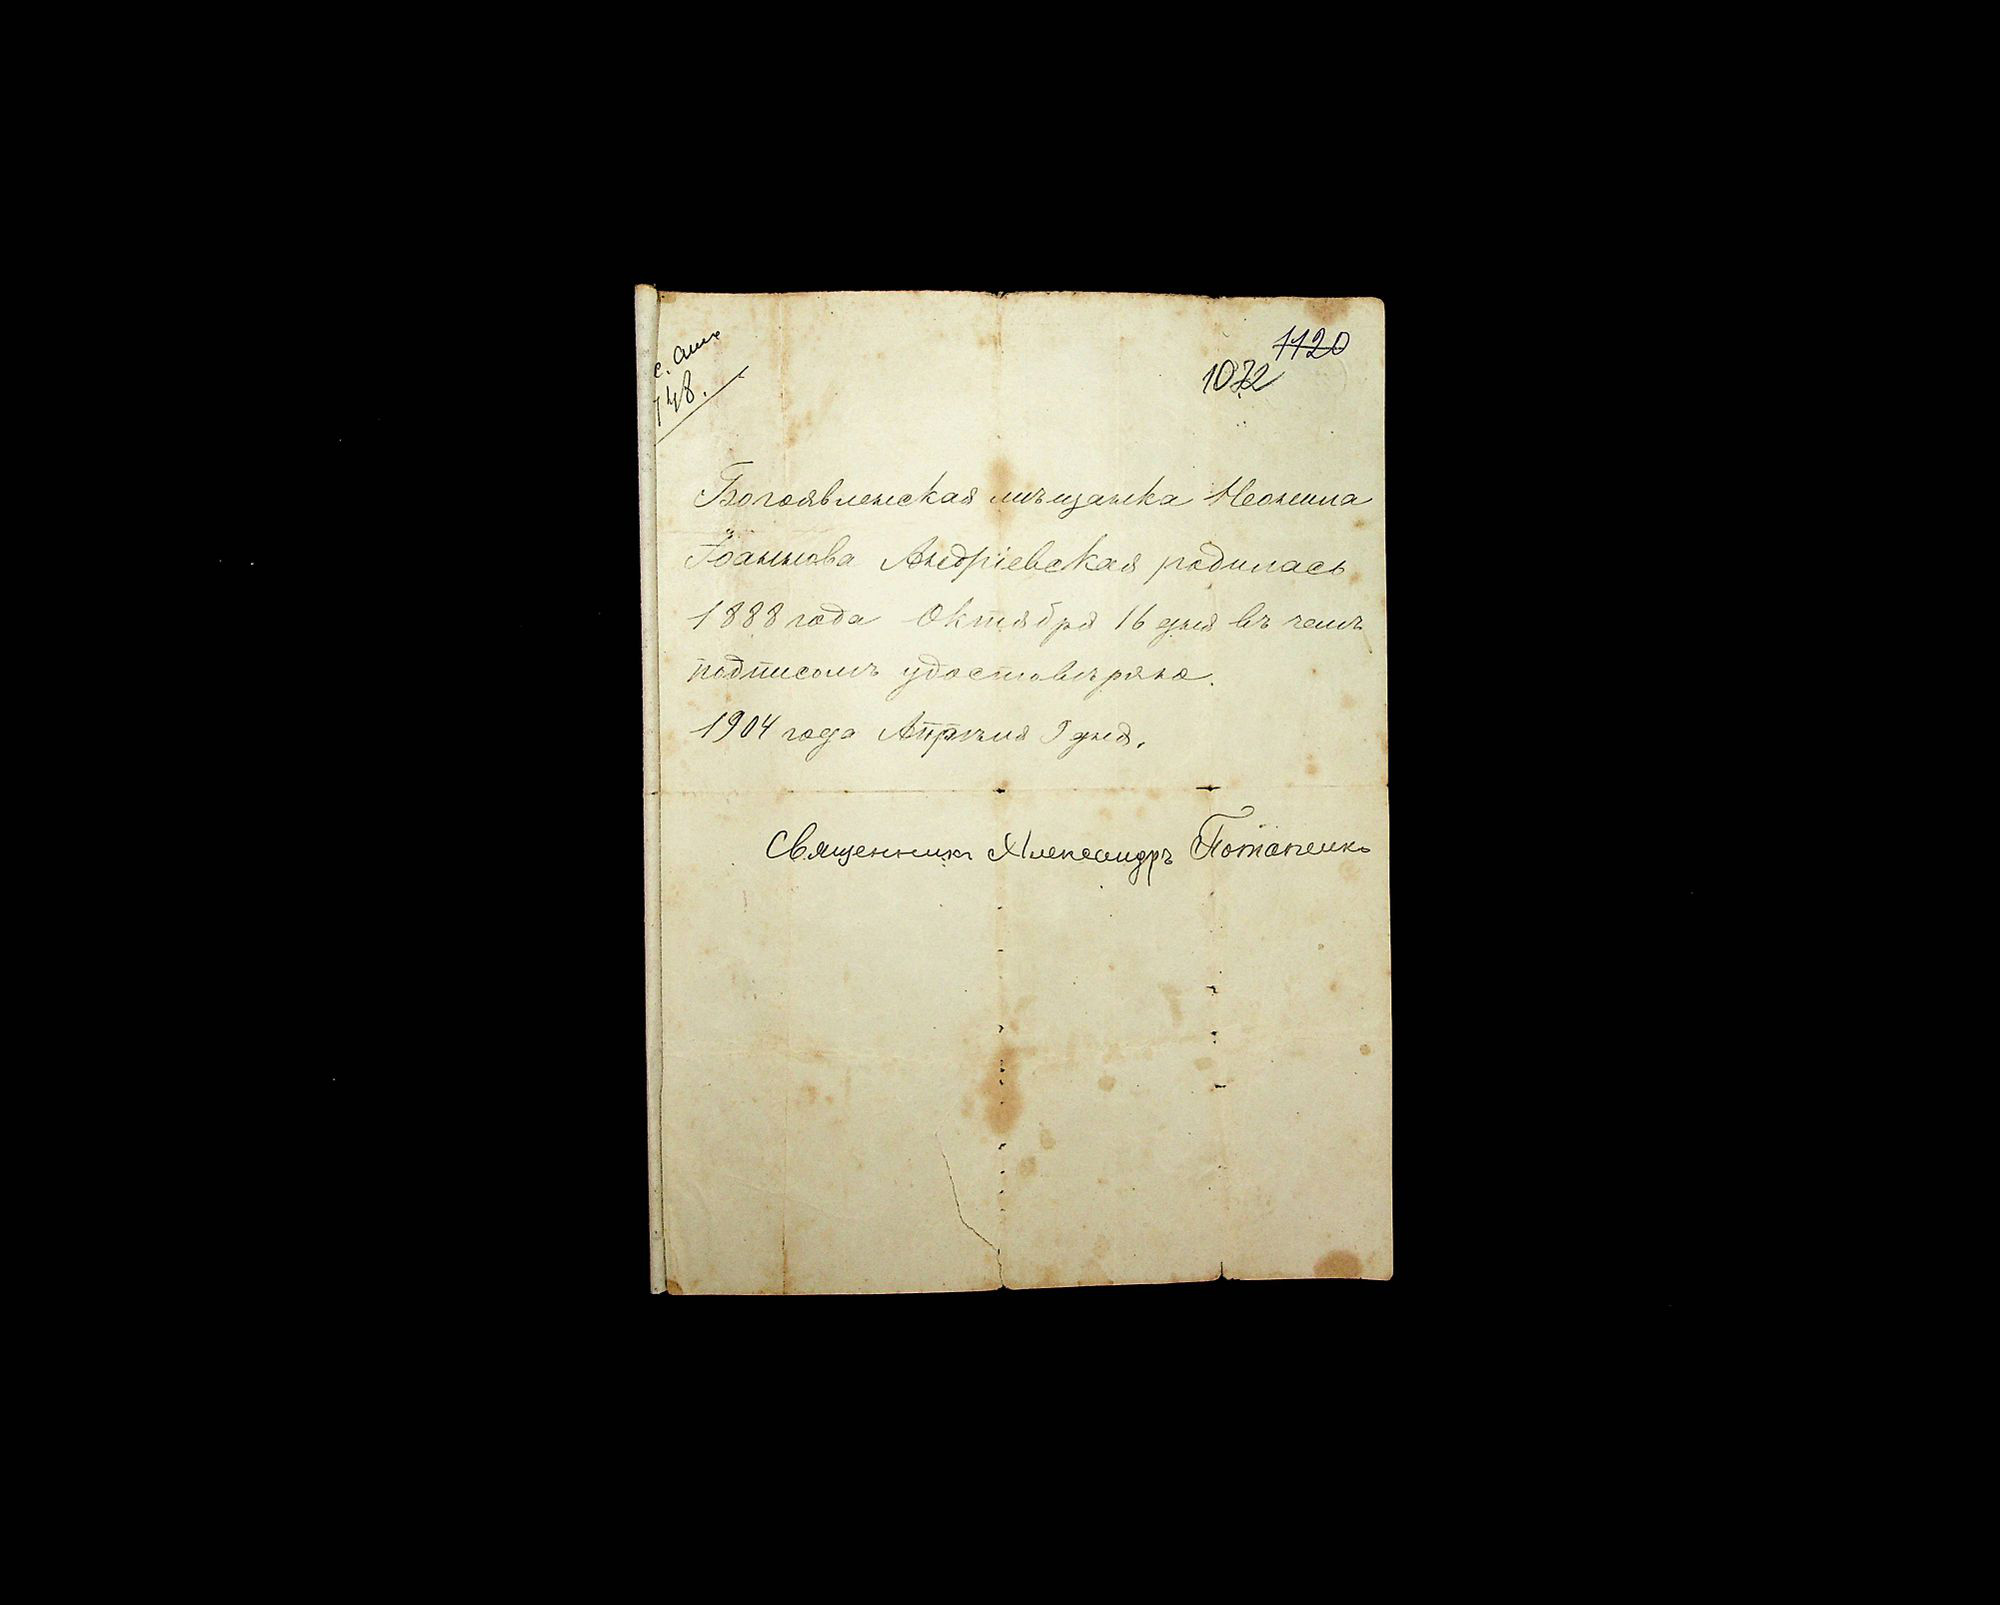 1120
1072
148.
Богоявленская мѣщанка Неонила
Іоаннова Андріевская родилась
1888 года Октября 16 дня въ чемъ
подписомъ удостовѣряю.
1904 года Апрѣля 9 дня.
Священникъ Александръ Потапенко